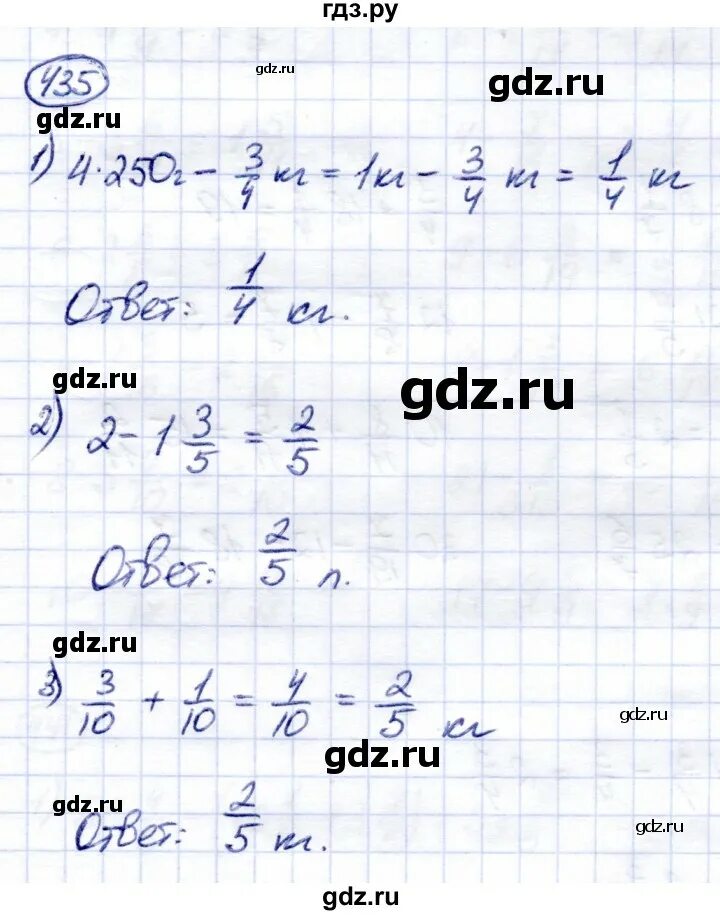 гдз.ру
435
gdz.ru
gdz.ru
gdz.ru
1) 4·250г - 3/4 кг = 1кг - 3/4 кг = 1/4 кг
Ответ: 1/4 кг.
gdz.ru
gdz.ru
2) 2 - 1 3/5 = 2/5
Ответ: 2/5 л.
gdz.ru
3) 3/10 + 1/10 = 4/10 = 2/5 кг
gdz.ru
gdz.ru
gdz.ru
Ответ: 2/5 кг.
gdz.ru
gdz.ru